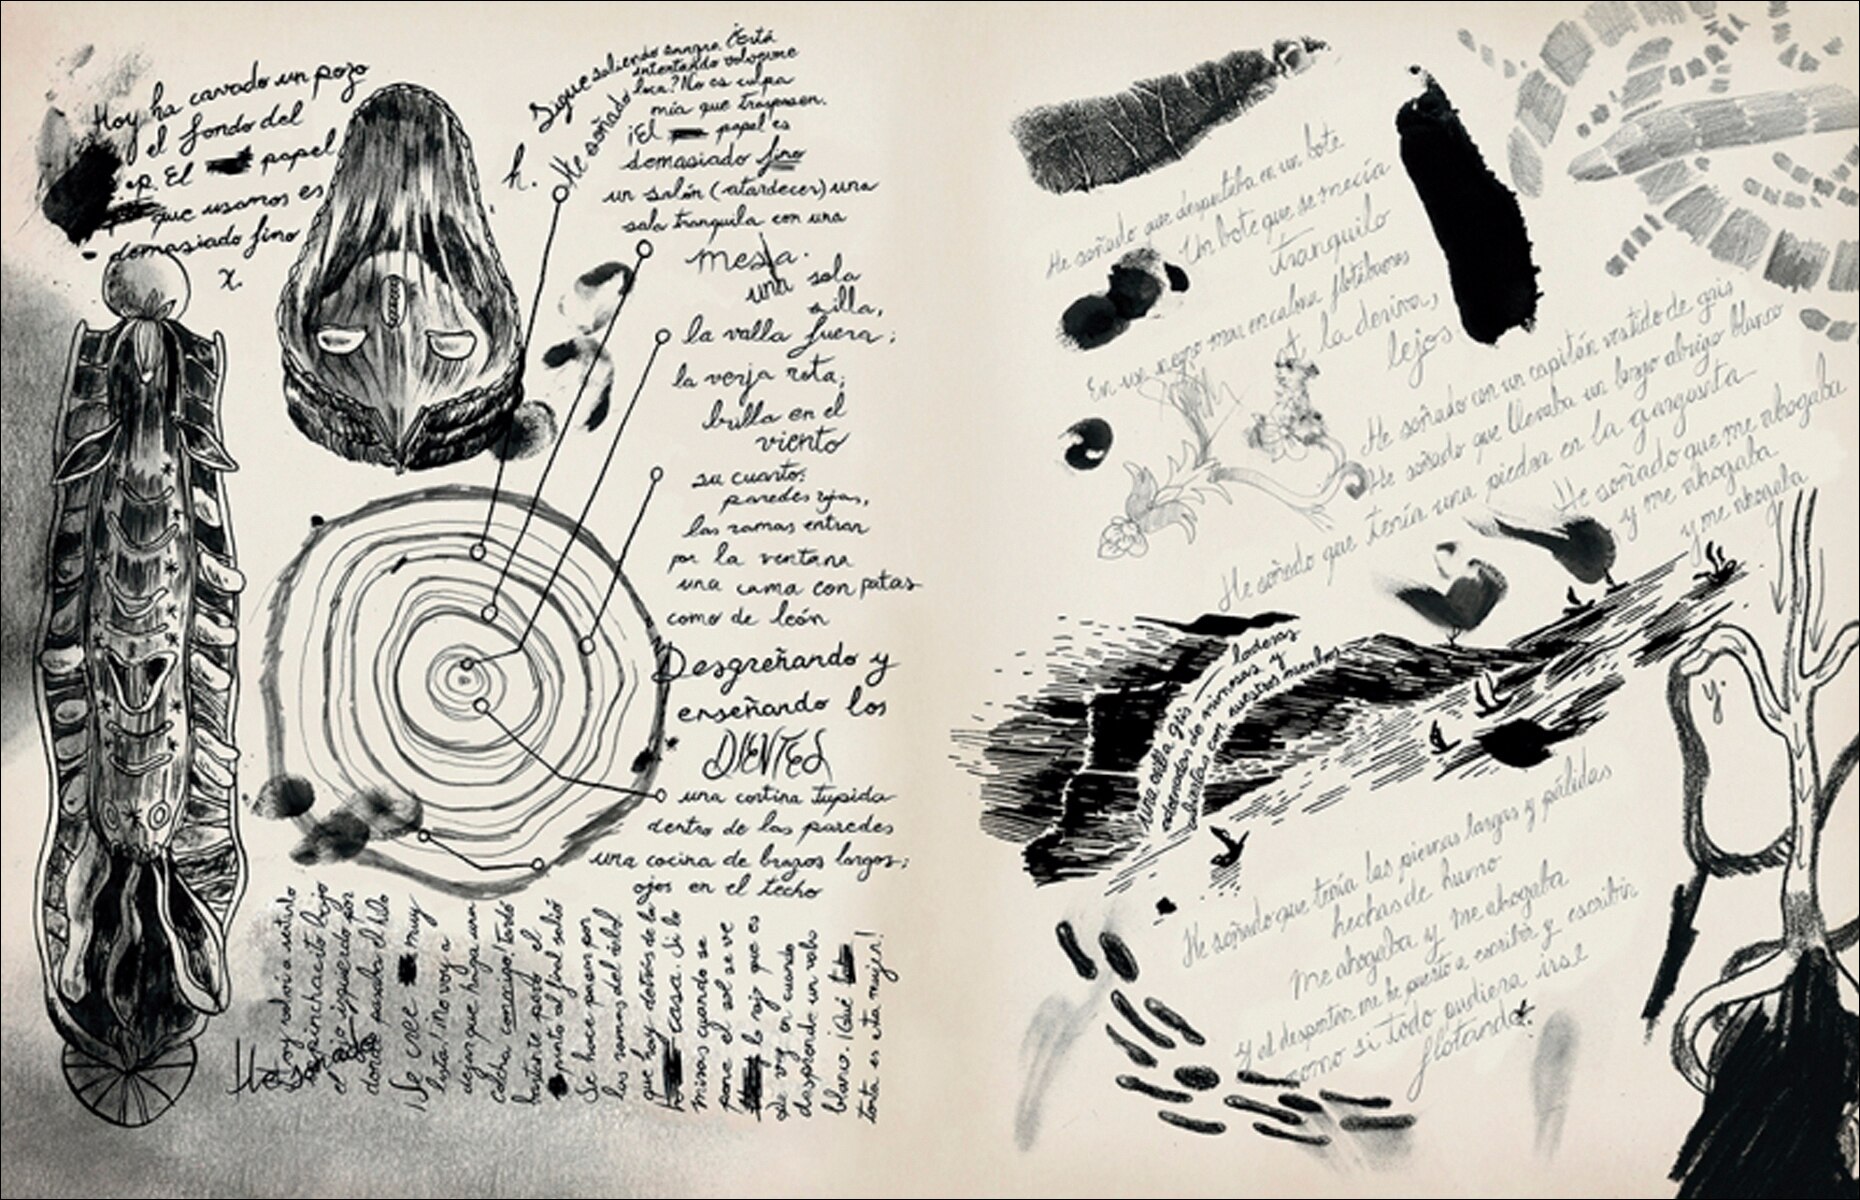 Hoy ha cavado un pozo
el fondo del
El papel
que usamos es
demasiado fino
x.
h.
Sigue saliendo sangre. ¿Está
intentando volverme
loca? No es culpa
mía que traspasen.
¡El papel es
demasiado fino
He soñado
un salón (atardecer) una
sala tranquila con una
mesa.
una sola
silla,
la valla fuera;
la verja rota;
brilla en el
viento
su cuarto:
paredes rojas,
las ramas entran
por la ventana
una cama con patas
como de león
Desgreñando y
enseñando los
DIENTES
una cortina tupida
dentro de las paredes
una cocina de brazos largos;
ojos en el techo
He soñado
Estoy
pinchacito bajo
el ojo izquierdo por
donde pasaba el hilo
¡Se cree muy
lista! ¡No voy a
dejar que haga una
colcha conmigo! Tardó
bastante pero el
punto al final salió
Se hace pasar por
las ramas del árbol
que hay detrás de la
casa. Si lo
miras cuando se
pone el sol se ve
lo rojo que es
De vez en cuando
desprende un vaho
blanco. ¡Qué
tonta es esta mujer!
He soñado que despertaba en un bote
Un bote que se mecía
tranquilo
En un negro mar en calma flotábamos
a la deriva,
lejos
He soñado con un capitán vestido de gris
He soñado que llevaba un largo abrigo blanco
He soñado que tenía una piedra en la garganta
He soñado que me ahogaba
y me ahogaba
y me ahogaba
y.
una orilla gris
adornadas de mimosas y
abiertas con nuestros nombres
He soñado que tenía las piernas largas y pálidas
hechas de humo
Me ahogaba y me ahogaba
Y al despertar me he puesto a escribir y escribir
como si todo pudiera irse
flotando